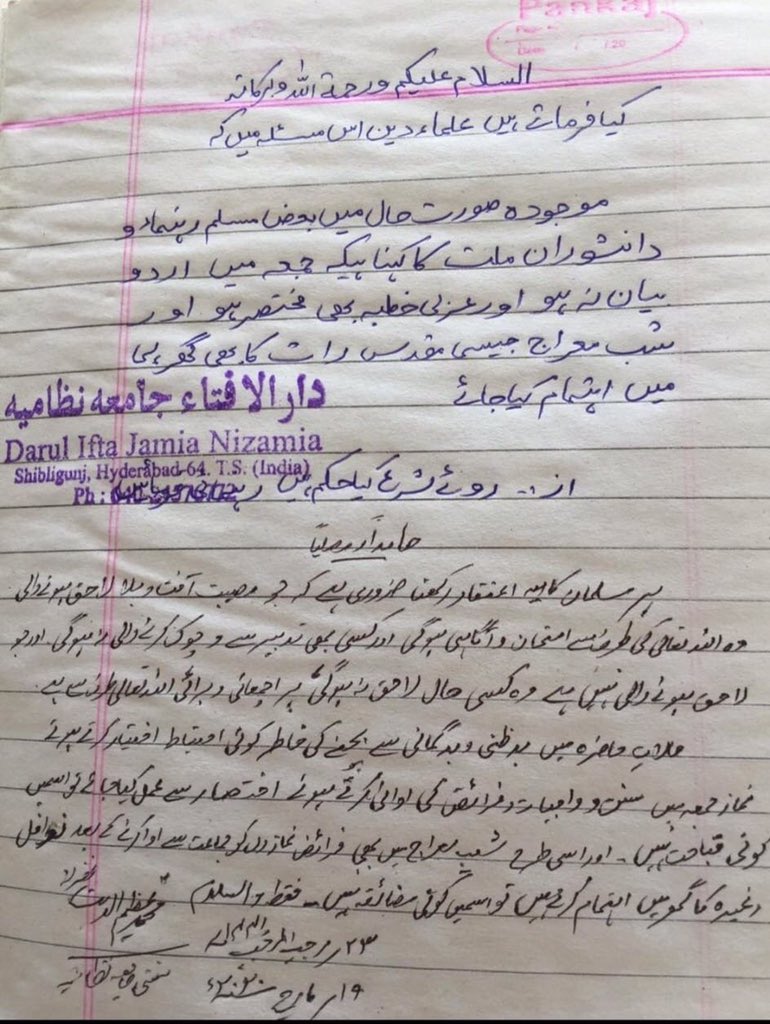 Pankaj
السلام علیکم ورحمۃ اللہ وبرکاتہ
کیا فرماتے ہیں علماء دین اس مسئلہ میں کہ
موجودہ صورت حال میں بعض مسلم رہنماء و
دانشوران ملت کا کہنا ہیکہ جمعہ میں اردو
بیان نہ ہو اور عربی خطبہ بھی مختصر ہو اور
شب معراج جیسی مقدس رات کا بھی گھر ہی
میں اہتمام کیا جائے
دار الافتاء جامعہ نظامیہ
Darul Ifta Jamia Nizamia
Shibligunj, Hyderabad-64. T.S. (India)
Ph :
از روئے شرع کیا حکم ہیں
حامداً ومصلیاً
ہر مسلمان کا یہ اعتقاد رکھنا ضروری ہے کہ جو مصیبت آفت و بلا لاحق ہونے والی
وہ اللہ تعالیٰ کی طرف سے امتحان و آگاہی ہوگی اور کسی بھی تدبیر سے و چوک کرنے والی نہ ہوگی۔ اور جو
لاحق ہونے والی نہیں ہے وہ کسی حال لاحق نہ ہوگی، ہر اچھائی و برائی اللہ تعالیٰ کی طرف سے ہے
حالات حاضرہ میں بدظنی و بدگمانی سے بچنے کی خاطر کوئی احتیاط اختیار کرتے ہوئے
نماز جمعہ میں سنن و واجبات و فرائض کی ادائی کرتے ہوئے اختصار سے عمل کیا جائے تو اسمیں
کوئی قباحت نہیں۔ اور اسی طرح شب معراج میں بھی فرائض نمازوں کو جماعت سے ادا کرنے کے بعد نوافل
وغیرہ کا گھر میں اہتمام کرتے ہیں تو اسمیں کوئی مضائقہ نہیں۔ فقط والسلام
محمد عظیم الدین
۲۳ رجب المرجب
مفتی جامعہ نظامیہ
۱۹ مارچ ۲۰۲۰ء